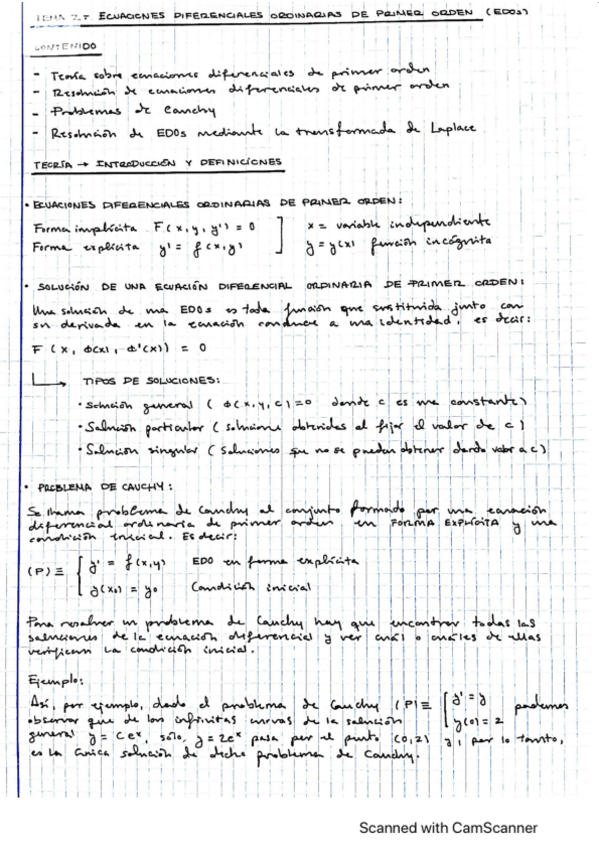 TEMA 2.- ECUACIONES DIFERENCIALES ORDINARIAS DE PRIMER ORDEN (EDOs)
CONTENIDO
- Teoría sobre ecuaciones diferenciales de primer orden
- Resolución de ecuaciones diferenciales de primer orden
- Problemas de Cauchy
- Resolución de EDOs mediante la transformada de Laplace
TEORÍA → INTRODUCCIÓN Y DEFINICIONES
• ECUACIONES DIFERENCIALES ORDINARIAS DE PRIMER ORDEN:
Forma implícita F(x, y, y') = 0 ] x = variable independiente
Forma explícita y' = f(x, y) ] y = y(x) función incógnita
• SOLUCIÓN DE UNA ECUACIÓN DIFERENCIAL ORDINARIA DE PRIMER ORDEN:
Una solución de una EDOs es toda función que sustituida junto con
su derivada en la ecuación conduce a una identidad, es decir:
F (x, ϕ(x), ϕ'(x)) = 0
TIPOS DE SOLUCIONES:
• Solución general (ϕ(x, y, c) = 0 donde c es una constante)
• Solución particular (soluciones obtenidas al fijar el valor de c)
• Solución singular (soluciones que no se pueden obtener dando valor a c)
• PROBLEMA DE CAUCHY:
Se llama problema de Cauchy al conjunto formado por una ecuación
diferencial ordinaria de primer orden en FORMA EXPLÍCITA y una
condición inicial. Es decir:
(P) ≡ { y' = f(x, y) EDO en forma explícita
y(x₀) = y₀ Condición inicial
Para resolver un problema de Cauchy hay que encontrar todas las
soluciones de la ecuación diferencial y ver cuál o cuáles de ellas
verifican la condición inicial.
Ejemplo:
Así, por ejemplo, dado el problema de Cauchy (P) ≡ { y' = y podemos
observar que de las infinitas curvas de la solución y(0) = 2
general y = Ceˣ, sólo, y = 2eˣ pasa por el punto (0, 2) y, por lo tanto,
es la única solución de dicho problema de Cauchy.
Scanned with CamScanner